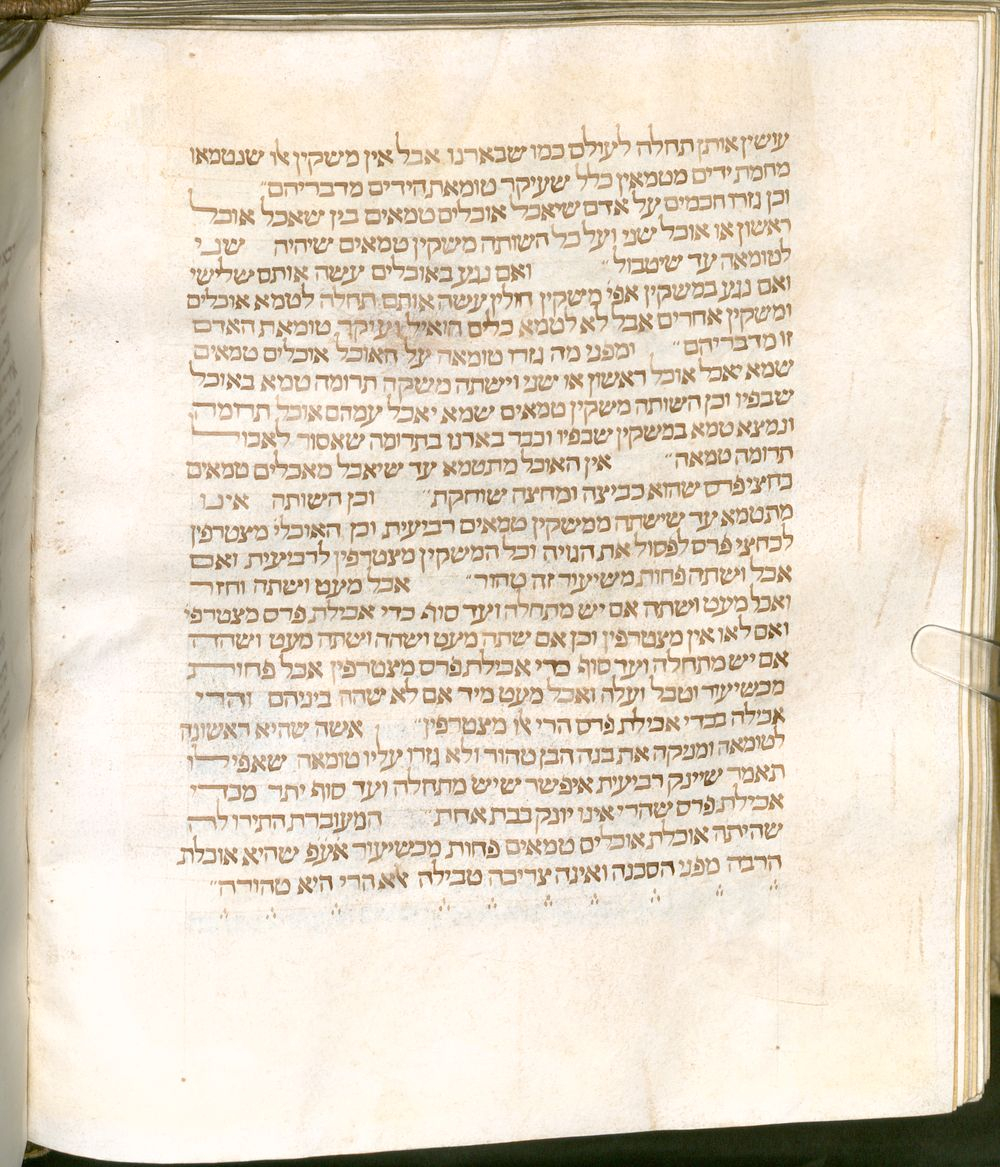 עושין אותן תחלה לעולם כמו שבארנו אבל אין משקין אלו שנטמאו
מחמת ידים מטמאין כלל שעיקר טומאת הידים מדבריהם״
וכן גזרו חכמים על אדם שיאכל אוכלים טמאים בין שאכל אוכל
ראשון או אוכל שני ועל כל השותה משקין טמאים שיהיה שני
לטומאה עד שיטבול״ ואם נגע באוכלים עשה אותם שלישי
ואם נגע במשקין אפי׳ משקין חולין עשה אותם תחלה לטמא אוכלים
ומשקין אחרים אבל לא לטמא כלים הואיל ועיקר טומאת האדם
זו מדבריהם״ ומפני מה גזרו טומאה על האוכל אוכלים טמאים
שמא יאכל אוכל ראשון או שני וישתה משקה תרומה טמא באוכל
שבפיו וכן השותה משקין טמאים שמא יאכל עמהם אוכל תרומה
ונמצא טמא במשקין שבפיו וכבר בארנו בתרומה שאסור לאכול
תרומה טמאה״ אין האוכל מתטמא עד שיאכל מאכלים טמאים
כחצי פרס שהוא כביצה ומחצה שוחקת״ וכן השותה אינו
מתטמא עד שישתה ממשקין טמאים רביעית וכן האוכלי׳ מצטרפין
לכחצי פרס לפסול את הגויה וכל המשקין מצטרפין לרביעית ואם
אכל ושתה פחות משיעור זה טהור״ אכל מעט ושתה וחזר
ואכל מעט ושתה אם יש מתחלה ועד סוף כדי אכילת פרס מצטרפי׳
ואם לאו אין מצטרפין וכן אם שתה מעט ושהה ושתה מעט ושהה
אם יש מתחלה ועד סוף כדי אכילת פרס מצטרפין אכל פחות
מכשיעור וטבל ועלה ואכל מעט מיד אם לא שהה ביניהם והרי
אכילה בכדי אכילת פרס הרי אלו מצטרפין״ אשה שהיא ראשונה
לטומאה ומניקה את בנה הבן טהור ולא גזרו עליו טומאה שאפילו
תאמר שיינק רביעית איפשר שיש מתחלה ועד סוף יתר מכדי
אכילת פרס שהרי אינו יונק בבת אחת״ המעוברת התירו לה
שהיתה אוכלת אוכלים טמאים פחות מכשיעור אעפ שהיא אוכלת
הרבה מפני הסכנה ואינה צריכה טבילה אלא הרי היא טהורה״